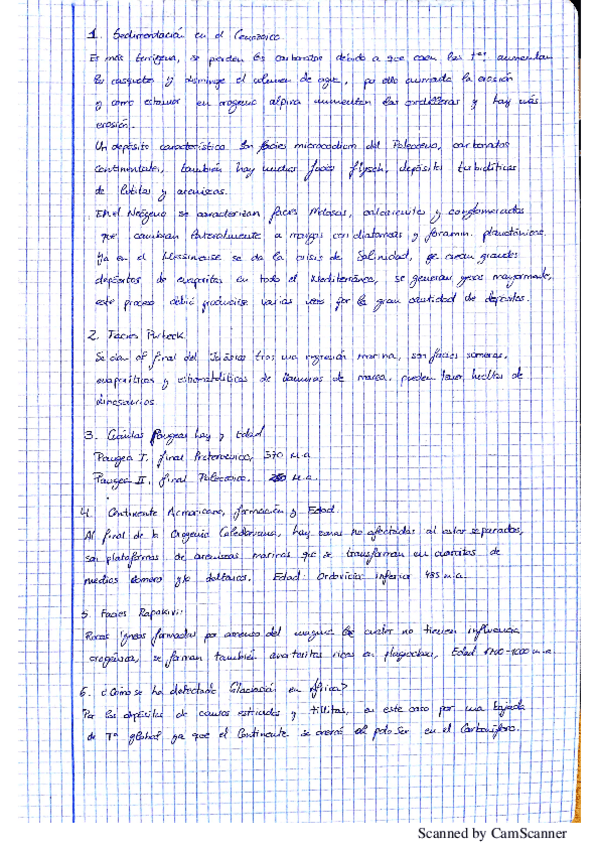 1. Sedimentación en el Cenozoico
Es más terrígena, se pierden los carbonatos debido a que caen las tªs, aumentan
los casquetes y disminuye el volumen de agua, por ello aumenta la erosión
y como estamos en orogenia alpina aumentan las cordilleras y hay más
erosión.
Un depósito característico son facies microcodium del Paleoceno, carbonatos
continentales, también hay muchas facies flysch, depósitos turbidíticas
de lutitas y areniscas.
En el Neógeno se caracterizan facies Molasas, calcarenitas y conglomerados
que cambian lateralmente a margas con diatomeas y foramin. planctónicos,
ya en el Messiniense se da la crisis de Salinidad, se crean grandes
depósitos de evaporitas en todo el Mediterráneo, se generan yesos mayormente,
este proceso debió producirse varias veces por la gran cantidad de depósitos.
2. Facies Purbeck
Se dan al final del Jurásico tras una regresión marina, son facies someras,
evaporíticas y de llanuras de marea, pueden tener huellas de
dinosaurios.
3. Cuántas Pangeas hay y Edad
Pangea I, final Proterozoico, 570 m.a
Pangea II, final Paleozoico, 250 m.a.
4. Continente Armoricano, formación y Edad.
Al final de la Orogenia Caledoniana, hay zonas no afectadas al estar separadas,
son plataformas de areniscas marinas que se transforman en cuarcitas de
medios somero y/o deltaicos. Edad: Ordovícico inferior 485 m.a.
5. Facies Rapakivi:
Rocas ígneas formadas por ascenso del magma las cuales no tienen influencia
orogénica, se forman también anortositas ricas en plagioclasa, Edad 1000 m.a
6. ¿Cómo se ha detectado Glaciación en África?
Por los depósitos de cantos estriados y tillitas, en este caso por una bajada
de Tª global ya que el Continente se acercó al polo Sur en el Carbonífero.
Scanned by CamScanner